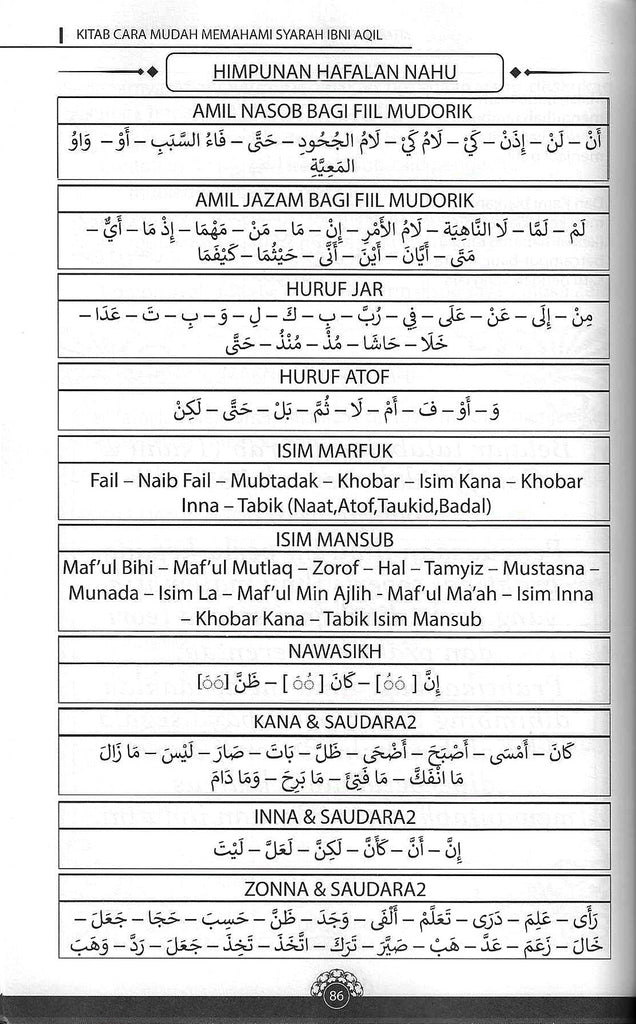 KITAB CARA MUDAH MEMAHAMI SYARAH IBNI AQIL
HIMPUNAN HAFALAN NAHU
AMIL NASOB BAGI FIIL MUDORIK
أَنْ – لَنْ – إِذَنْ – كَيْ – لَامُ كَيْ – لَامُ الجُحُودِ – حَتَّى – فَاءُ السَّبَبِ – أَوْ – وَاوُ
المَعِيَّةِ
AMIL JAZAM BAGI FIIL MUDORIK
لَمْ – لَمَّا – لَا النَّاهِيَة – لَامُ الأَمْرِ – إِنْ – مَا – مَنْ – مَهْمَا – إِذْ مَا – أَيٌّ –
مَتَى – أَيَّانَ – أَيْنَ – أَنَّى – حَيْثُمَا – كَيْفَمَا
HURUF JAR
مِنْ – إِلَى – عَنْ – عَلَى – فِي – رُبَّ – بِ – كَ – لِ – وَ – بِ – تَ – عَدَا –
خَلَا – حَاشَا – مُذْ – مُنْذُ – حَتَّى
HURUF ATOF
وَ – أَوْ – فَ – أَمْ – لَا – ثُمَّ – بَلْ – حَتَّى – لَكِنْ
ISIM MARFUK
Fail – Naib Fail – Mubtadak – Khobar – Isim Kana – Khobar
Inna – Tabik (Naat,Atof,Taukid,Badal)
ISIM MANSUB
Maf'ul Bihi – Maf'ul Mutlaq – Zorof – Hal – Tamyiz – Mustasna –
Munada – Isim La – Maf'ul Min Ajlih - Maf'ul Ma'ah – Isim Inna
– Khobar Kana – Tabik Isim Mansub
NAWASIKH
إِنَّ [ َ ُ ] – كَانَ [ ُ َ ] – ظَنَّ [ َ َ ]
KANA & SAUDARA2
كَانَ – أَمْسَى – أَصْبَحَ – أَضْحَى – ظَلَّ – بَاتَ – صَارَ – لَيْسَ – مَا زَالَ
مَا انْفَكَّ – مَا فَتِئَ – مَا بَرِحَ – وَمَا دَامَ
INNA & SAUDARA2
إِنَّ – أَنَّ – كَأَنَّ – لَكِنَّ – لَعَلَّ – لَيْتَ
ZONNA & SAUDARA2
رَأَى – عَلِمَ – دَرَى – تَعَلَّمْ – أَلْفَى – وَجَدَ – ظَنَّ – حَسِبَ – حَجَا – جَعَلَ –
خَالَ – زَعَمَ – عَدَّ – هَبْ – صَيَّرَ – تَرَكَ – اتَّخَذَ – تَخِذَ – جَعَلَ – رَدَّ – وَهَبَ
86